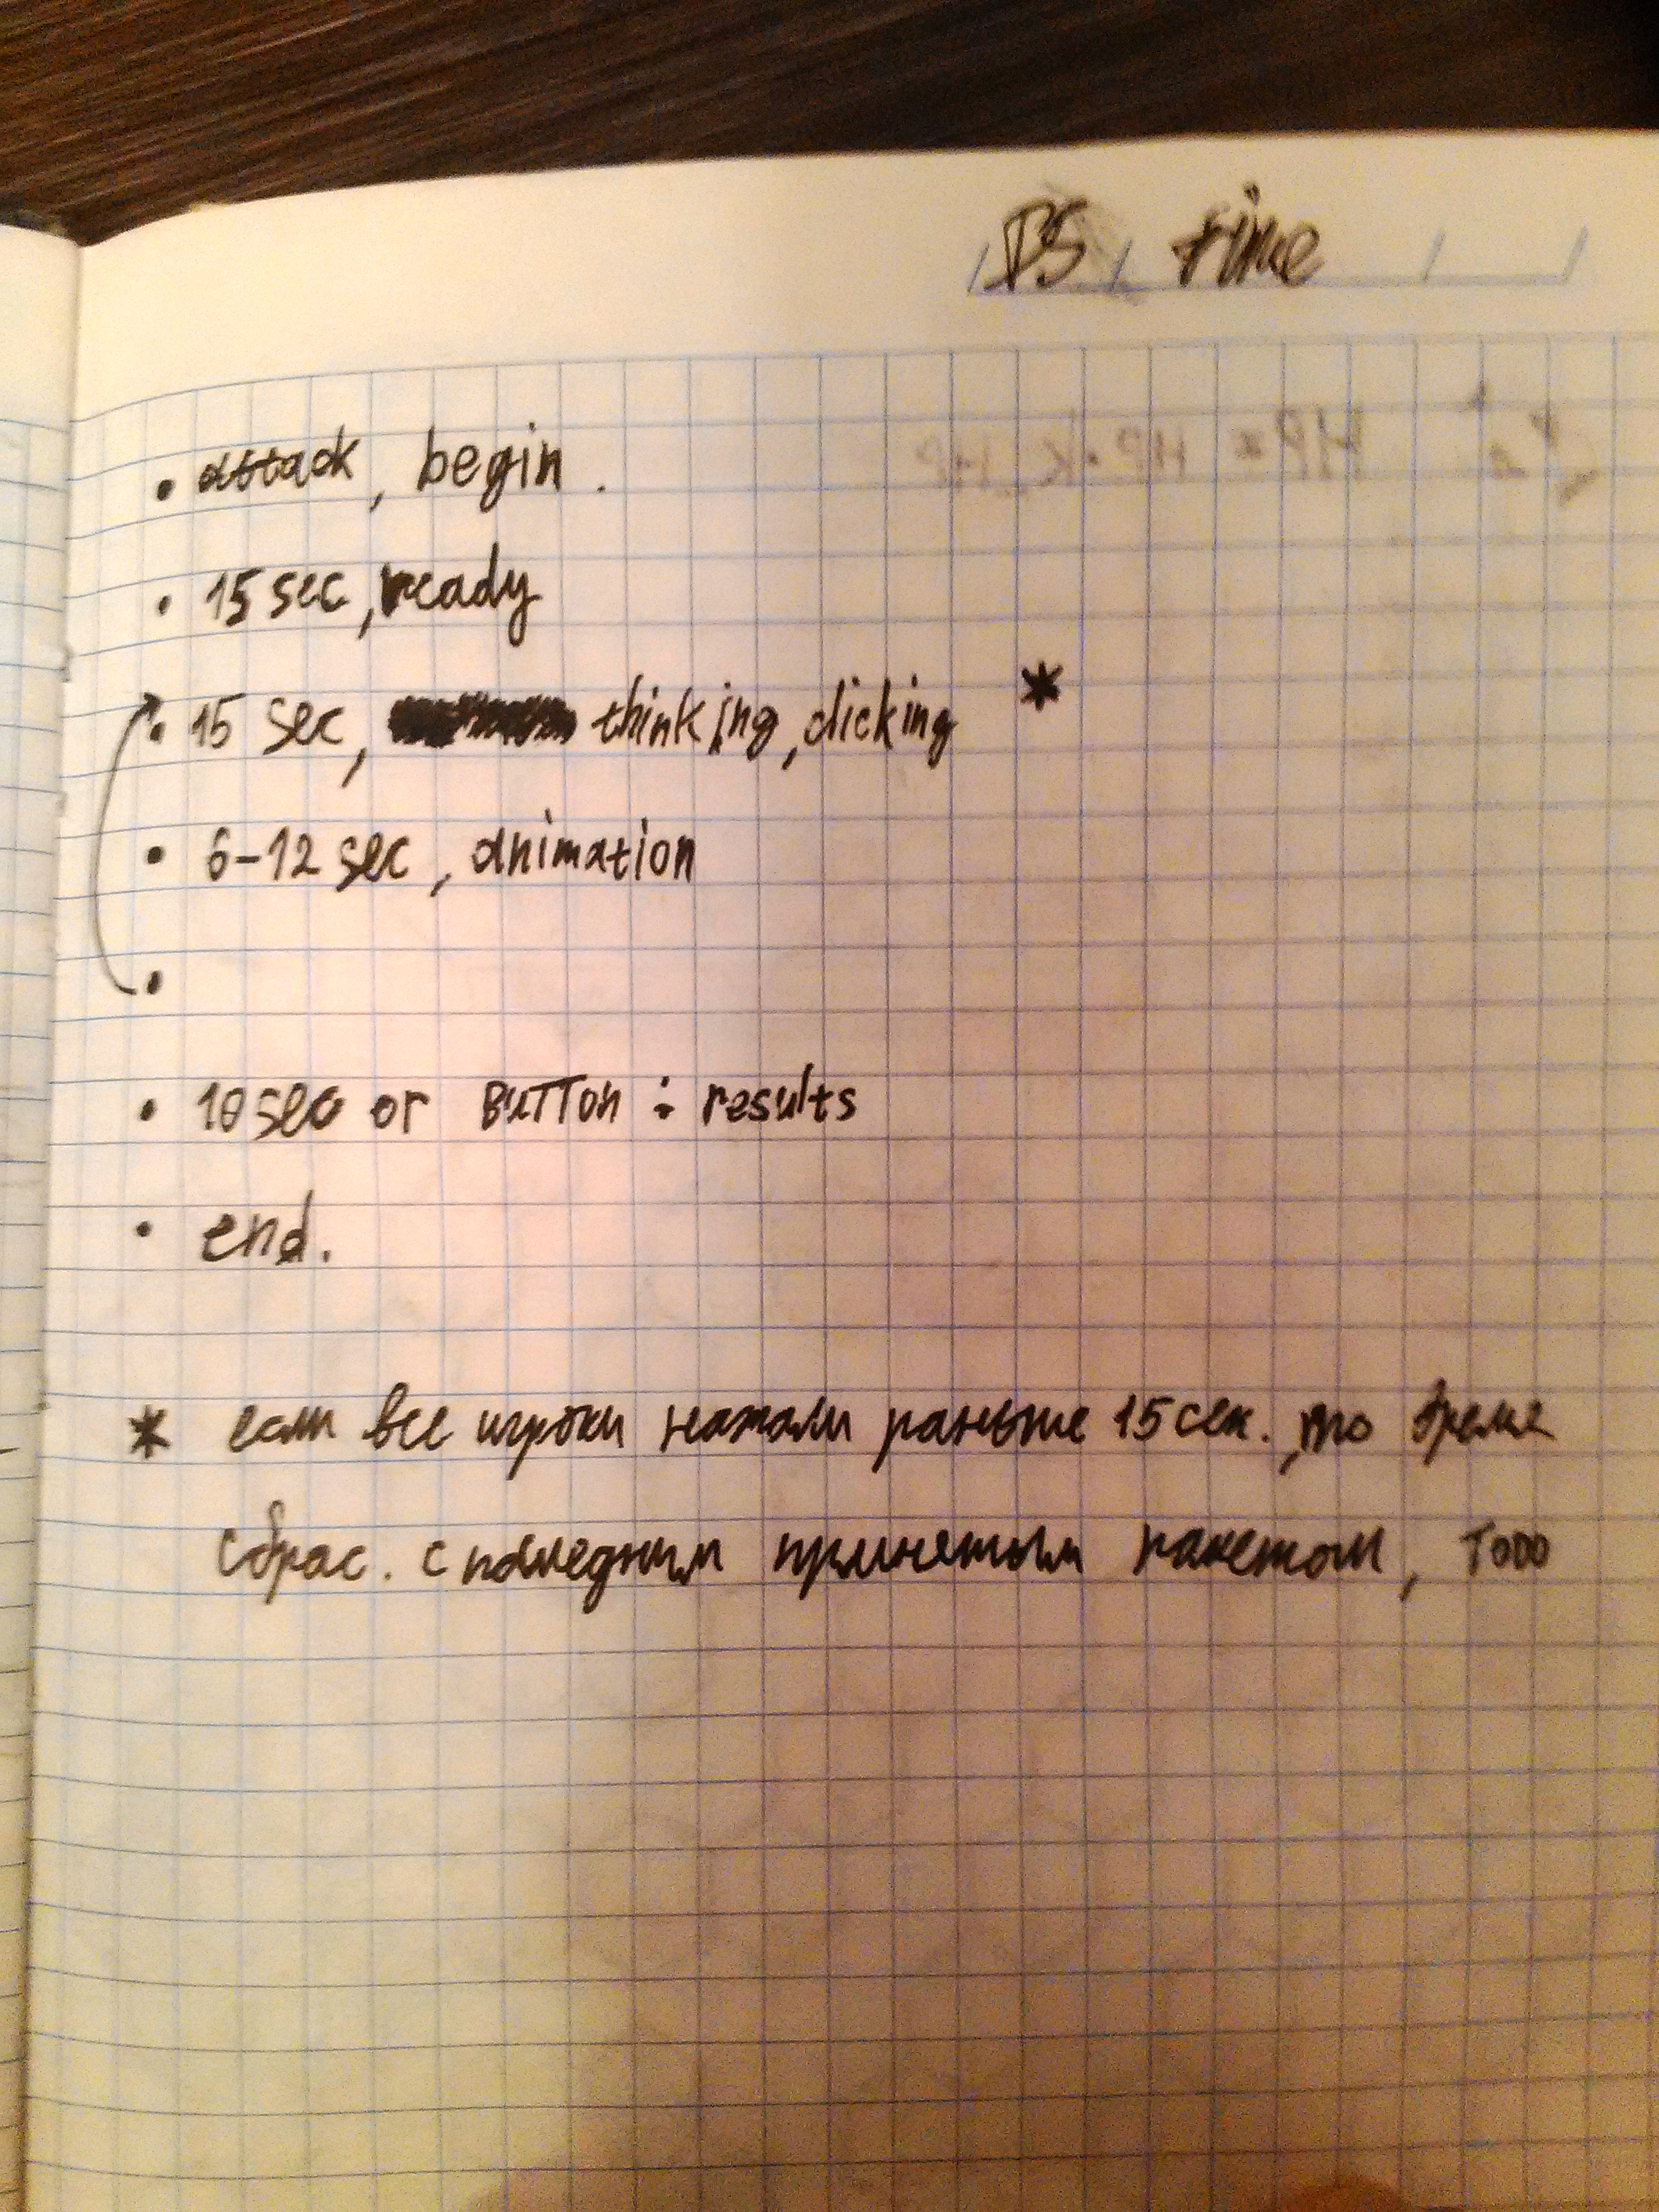 DS time
• attack, begin.
• 15 sec, ready
• 15 sec, thinking, clicking *
• 6-12 sec, animation
•
• 10 sec or BUTTON : results
• end.
* если все игроки нажали раньше 15 сек., то время
сброс. с последним принятым пакетом, TODO